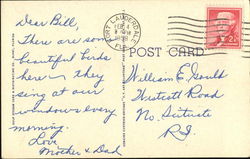 Dear Bill,
There are some
beautiful birds
here & they
sing at our
windows every
morning.
Love
Mother & Dad
FORT LAUDERDALE
FLA
POST CARD
William E. Gould
Road
No. Scituate
R.I.
2¢